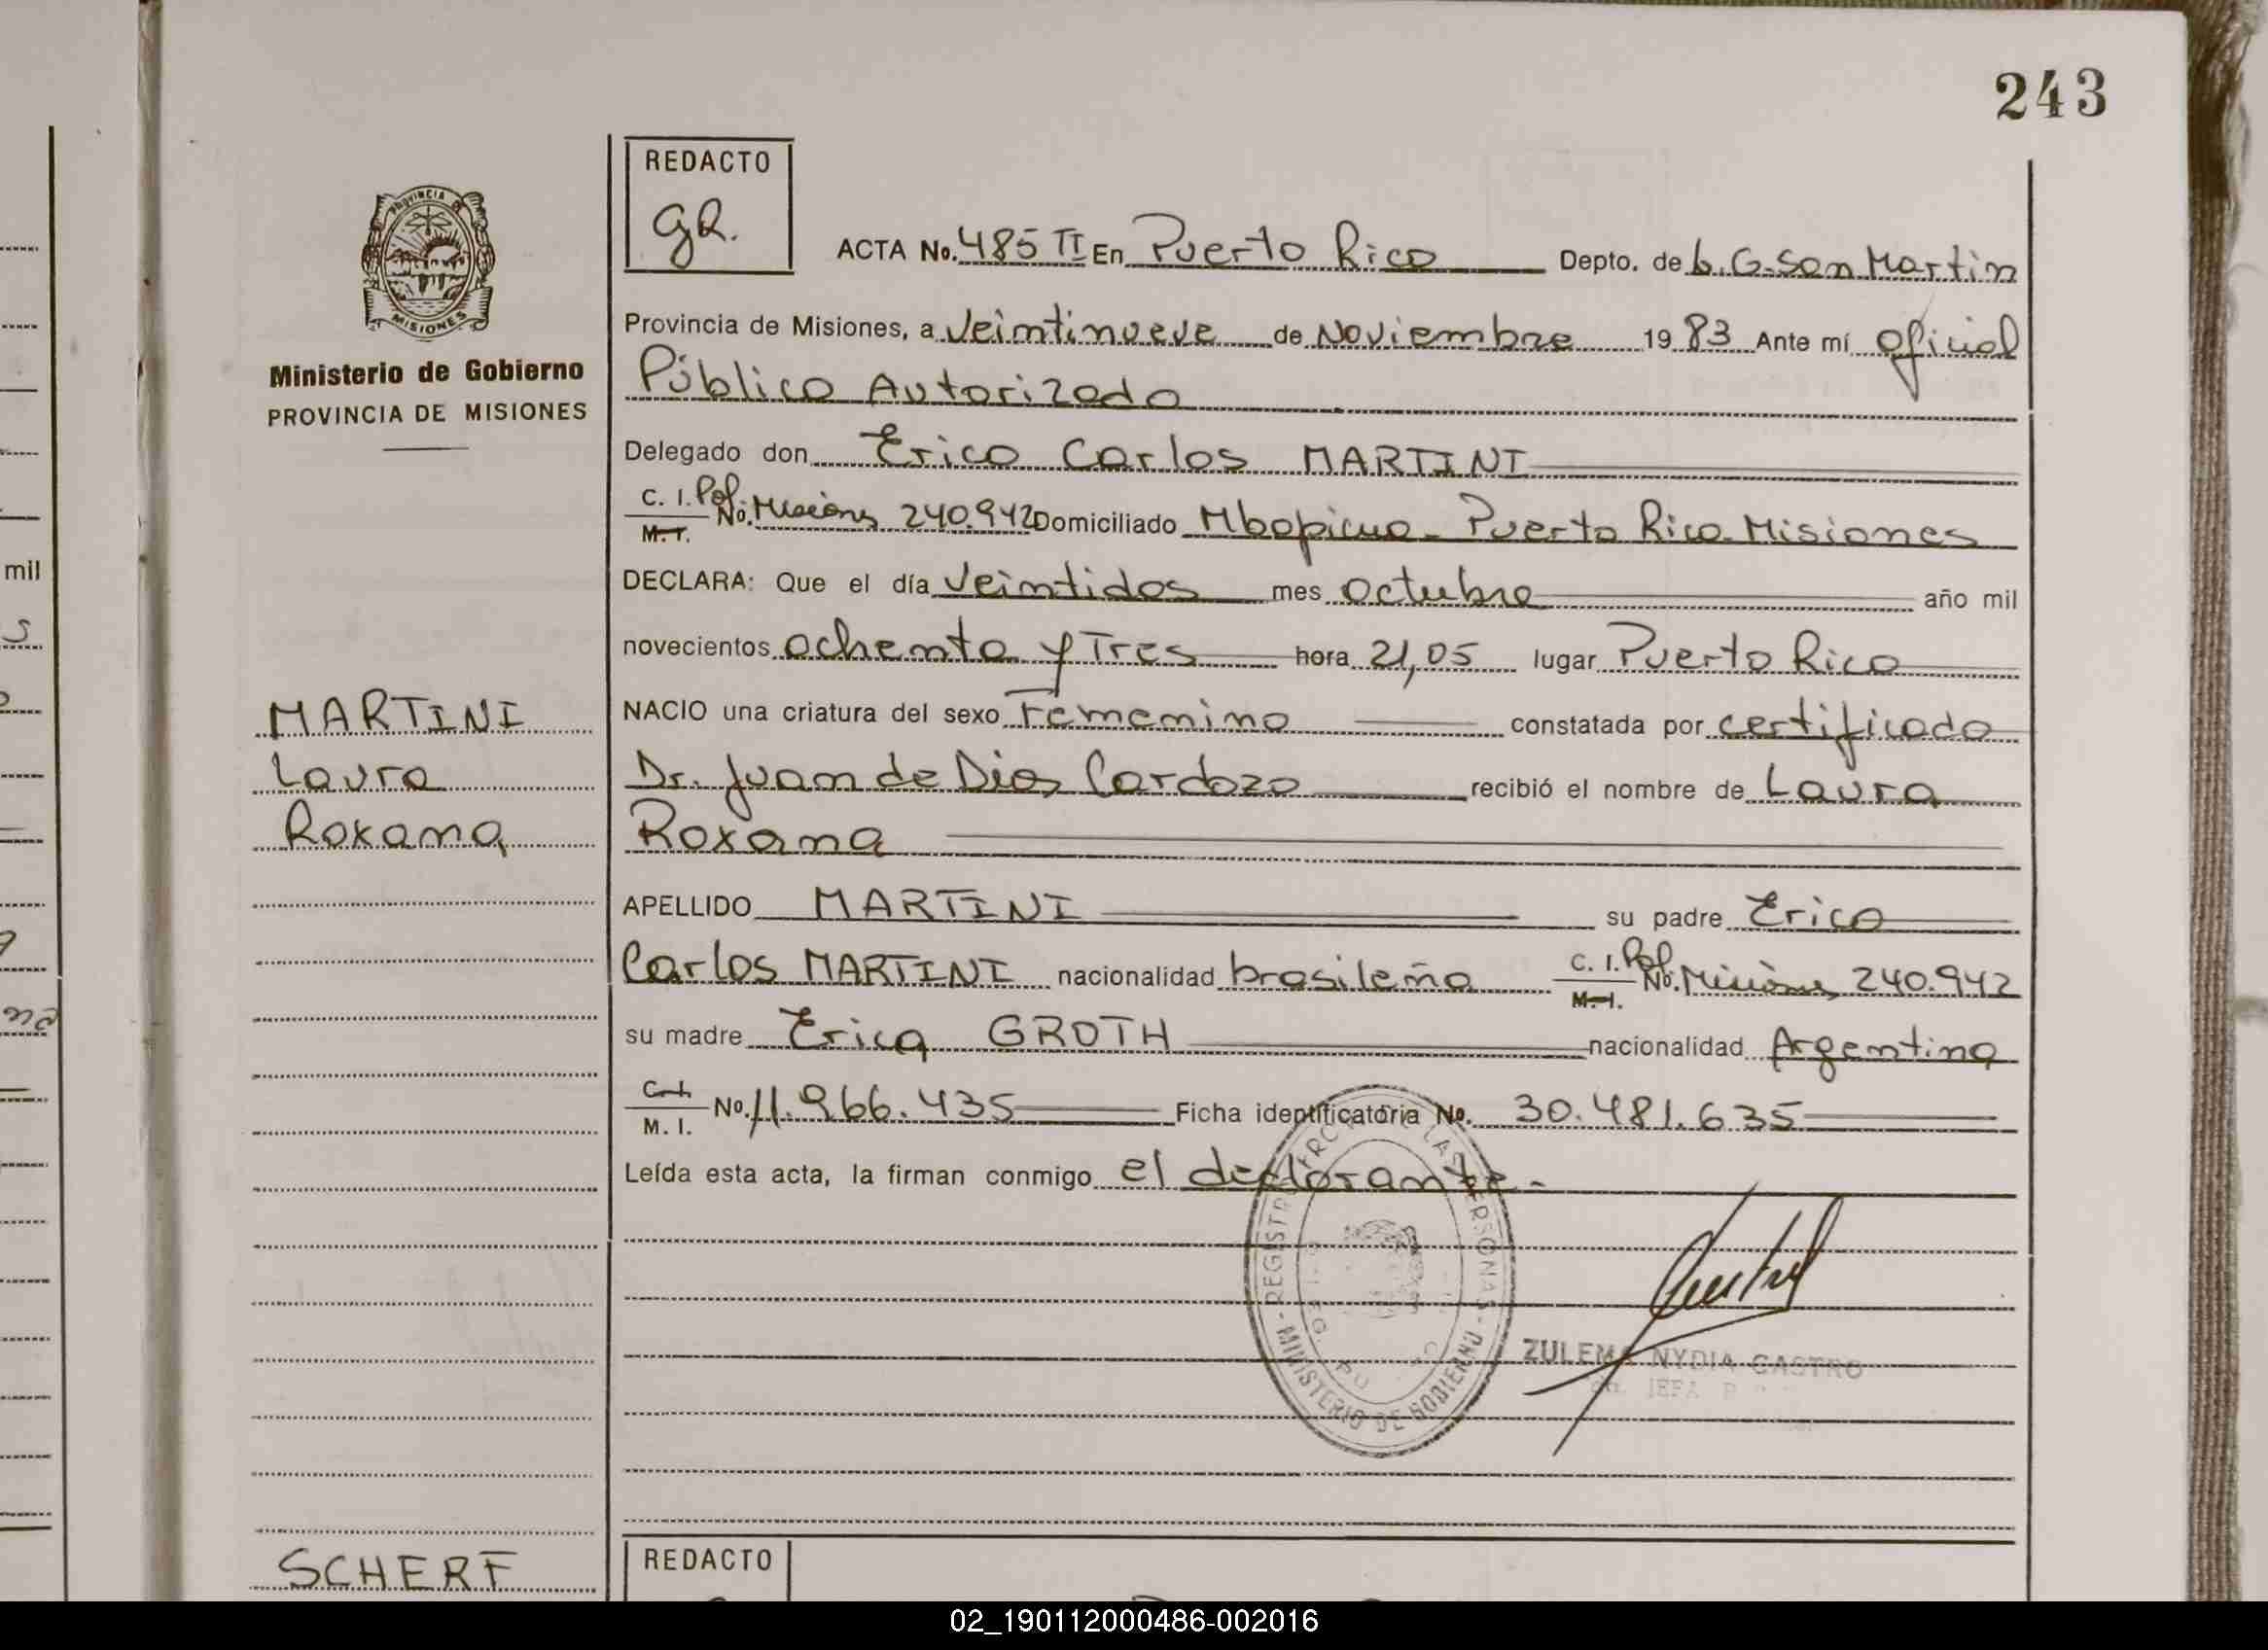 243
REDACTO
gR.
PROVINCIA DE
MISIONES
Ministerio de Gobierno
PROVINCIA DE MISIONES
ACTA No. 485 II En Puerto Rico Depto. de L. G. San Martin
Provincia de Misiones, a veintinueve de Noviembre 1983 Ante mí oficial
Público Autorizado
Delegado don Erico Carlos MARTINI
C. I. Pol. M. I. No. Misiones 240.942 Domiciliado Mbopicua - Puerto Rico - Misiones
DECLARA: Que el día veintidos mes octubre año mil
novecientos ochenta y Tres hora 21,05 lugar Puerto Rico
MARTINI
Laura
Roxana
NACIO una criatura del sexo Femenino constatada por certificado
Dr. Juan de Dios Cardozo recibió el nombre de Laura
Roxana
APELLIDO MARTINI su padre Erico
Carlos MARTINI nacionalidad brasileña C. I. Pol. M. I. No. Misiones 240.942
su madre Erica GROTH nacionalidad Argentina
C. I. M. I. No. 11.966.435 Ficha identificatoria No. 30.481.635
Leída esta acta, la firman conmigo el declarante.-
REGISTRO LAS PERSONAS - MINISTERIO DE GOBIERNO
ZULEMA NYDIA CASTRO
JEFA
SCHERF
REDACTO
mil
02_190112000486-002016